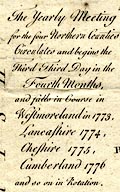 The Yearly Meeting
for the four Northern Counties
Circulates and begins the
Third Third Day in the
Fourth Month,
and falls in Course in
Westmoreland in 1773.
Lancashire 1774.
Cheshire 1775.
Cumberland 1776
and so on in Rotation.